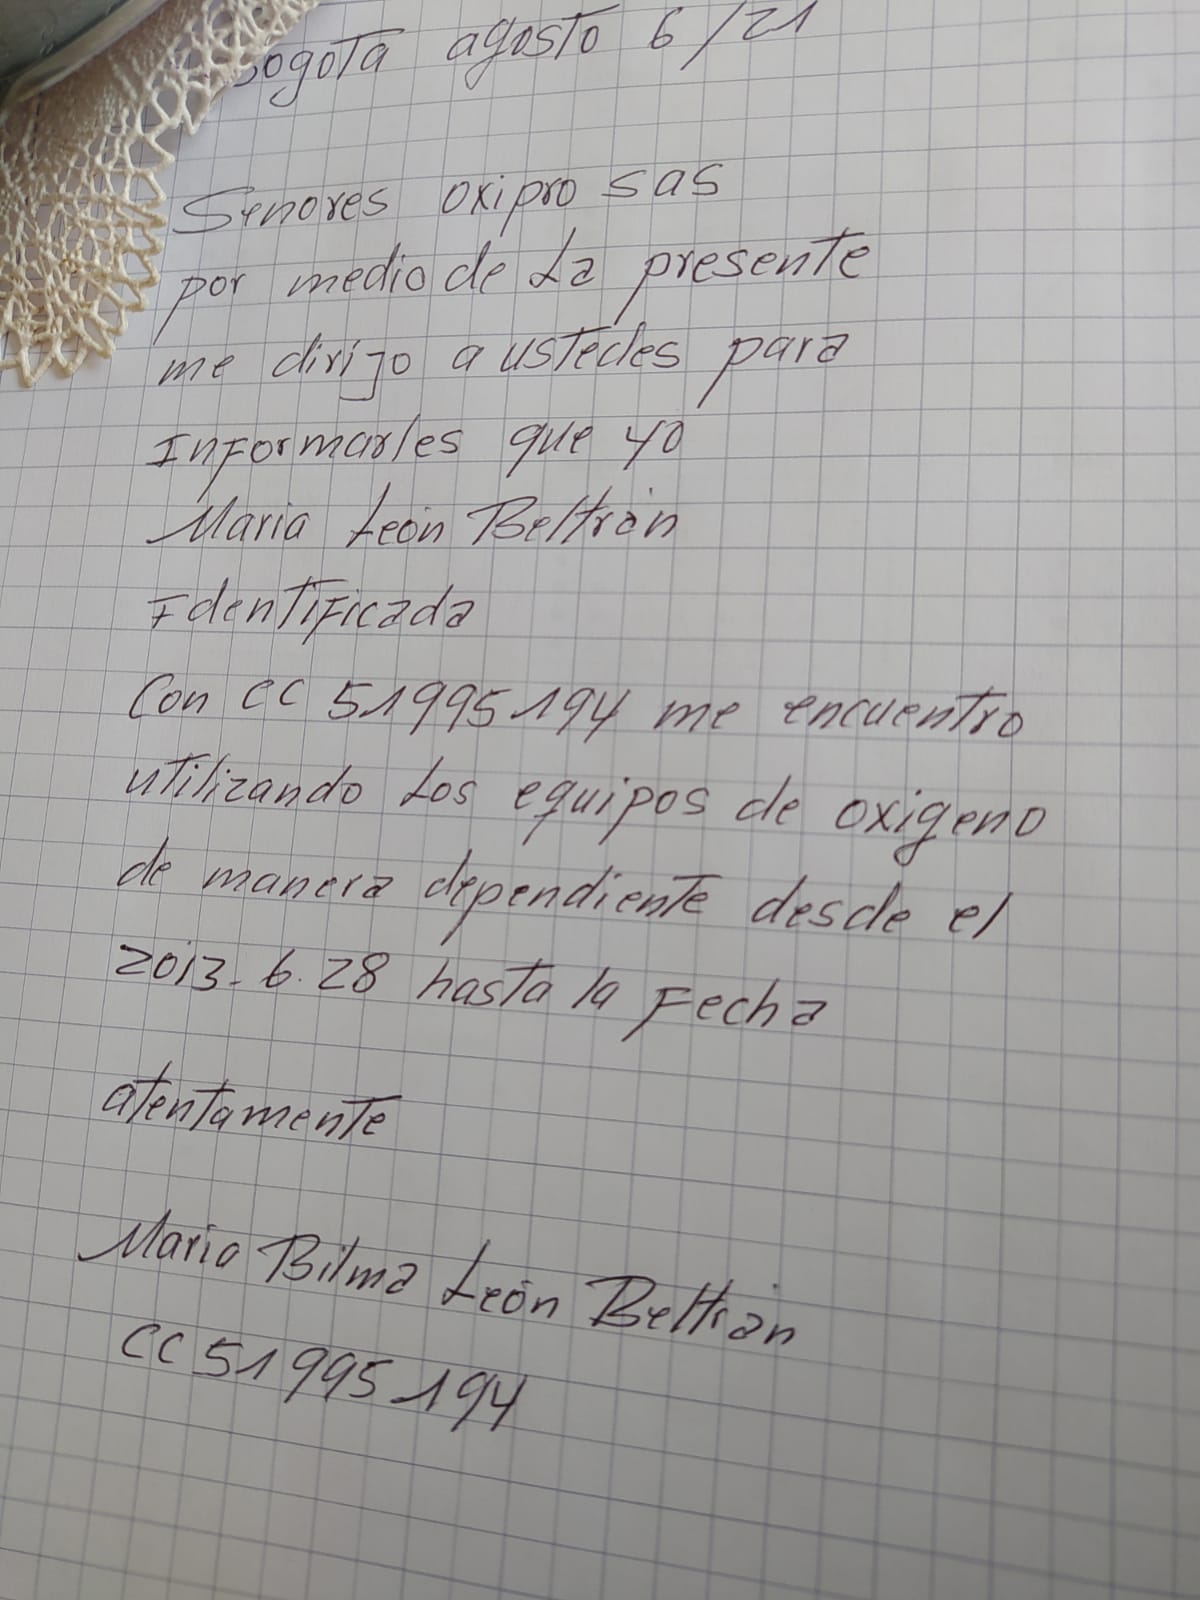 Bogota agosto 6/21
Senores oxipro sas
por medio de La presente
me dirijo a ustedes para
Informarles que yo
Maria León Beltrán
Identificada
Con CC 51995194 me encuentro
utilizando Los equipos de oxigeno
de manera dependiente desde el
2013-6.28 hasta la Fecha
atentamente
Maria Bilma León Beltrán
CC 51995194